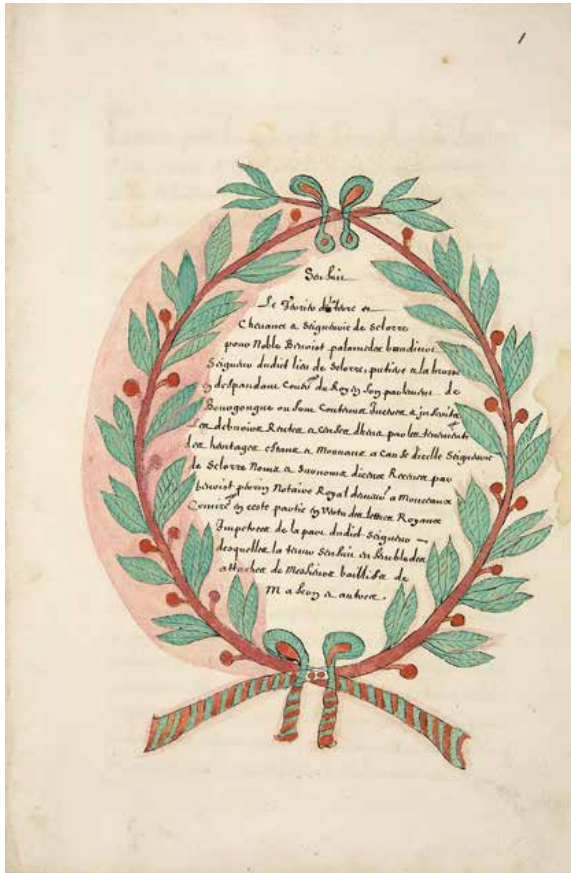 1
Sensuit
Le Terrier du terre et
Chevance et Seigneurie de Selorre
pour Noble Benoist palamedes baudinot
Seigneur dudict lieu de Selorre, et la brosse
en despandant du Roy en son parlement de
Bourgougne ou sont Contenus
Les debvoirs Rentes et Censes dheus par les tenementiers
des heritages estans et Mouvans a Cause dicelle Seigneurie
de Selorre Noms et Surnoms diceux Receus par
benoist perrin Notaire Royal a Monceaux
en ceste partie en Vertu des lettres Royaux
Impetrees de la part dudict Seigneur
desquelles la teneur Sensuit ensemble des
attaches de Messieurs baillifz de
Mascon et autres.